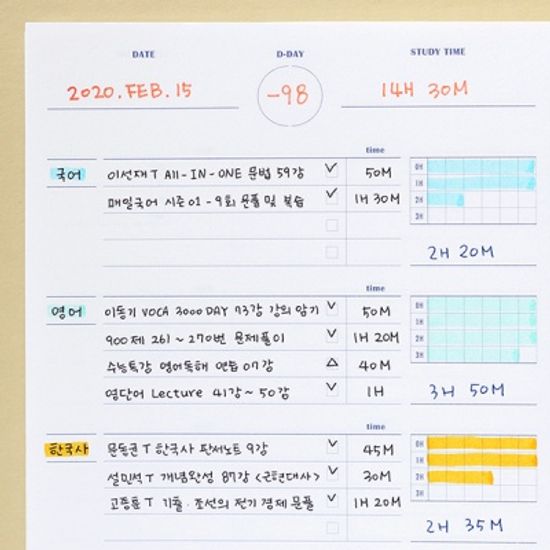 DATE D-DAY STUDY TIME
2020.FEB.15 -98 14H 30M
time
국어 이선재T All-IN-ONE 문법 59강 50M 0H
매일국어 시즌01-9회 문풀 및 복습 1H 30M 1H
2H
3H
2H 20M
time
영어 이동기 VOCA 3000 DAY 73강 강의 암기 50M 0H
900제 261~270번 문제풀이 1H 20M 1H
수능특강 영어독해 연습 07강 40M 2H
3H
영단어 Lecture 41강~50강 1H 3H 50M
time
한국사 문동균T 한국사 판서노트 9강 45M 0H
설민석T 개념완성 87강 <근현대사> 30M 1H
고종훈T 기풀·조선의 전기 경제 문풀 1H 20M 2H
3H
2H 35M